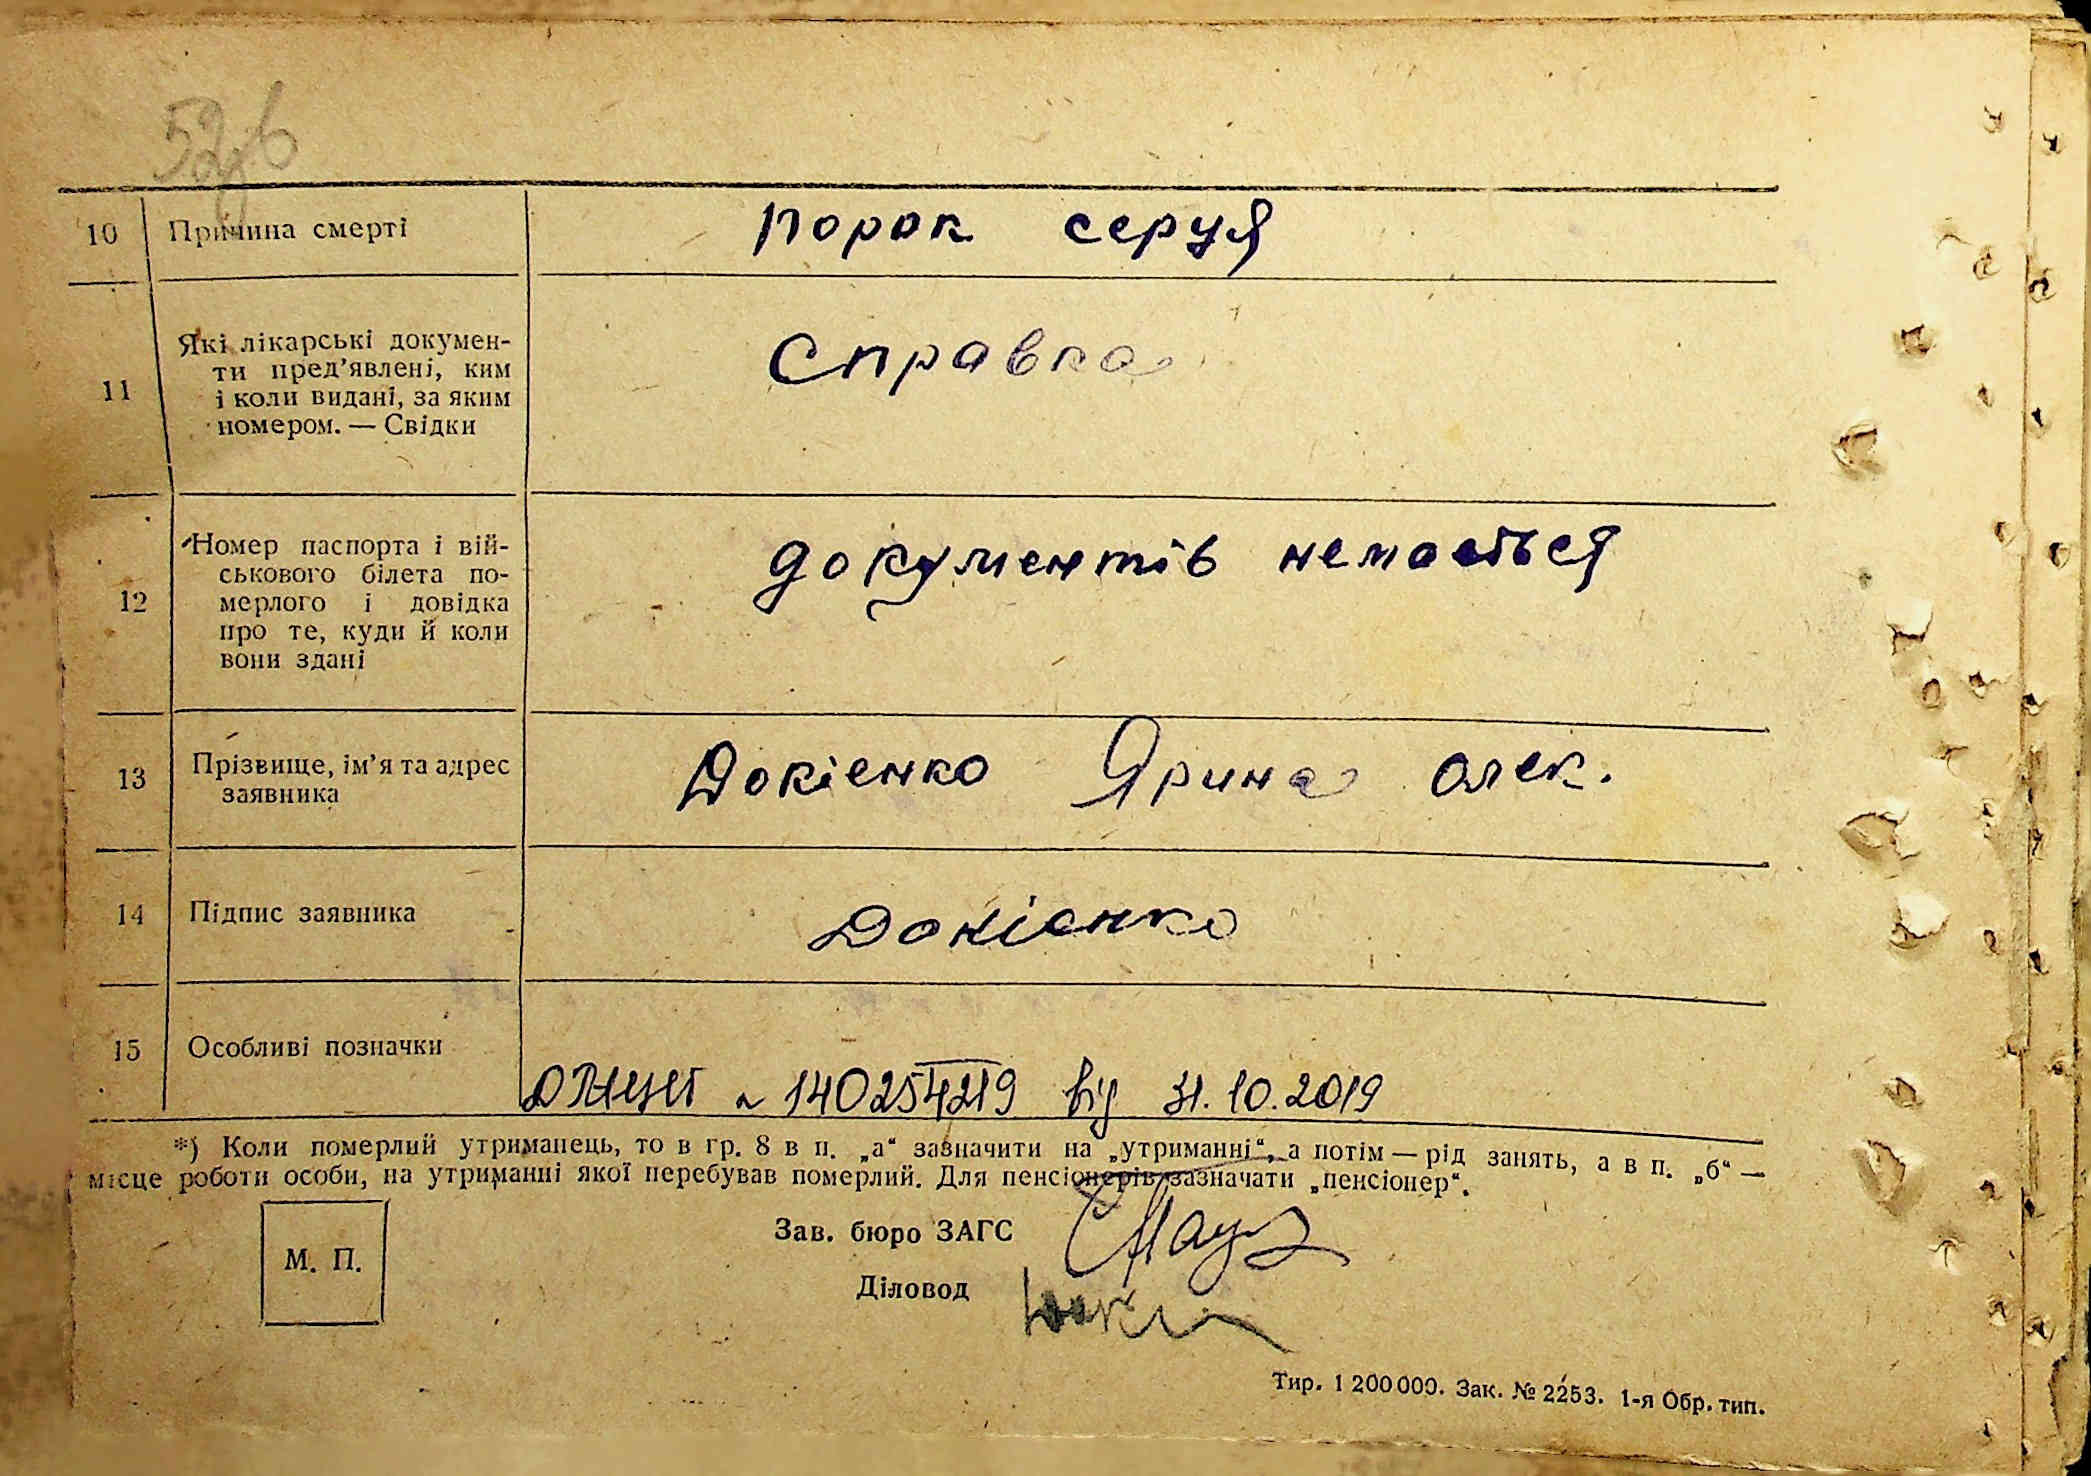 10 Причина смерті порок серця
11 Які лікарські докумен-
ти пред’явлені, ким
і коли видані, за яким
номером. — Свідки
Справка
12 Номер паспорта і вій-
ськового білета по-
мерлого і довідка
про те, куди й коли
вони здані
документів немається
13 Прізвище, ім’я та адрес
заявника
Докієнко Ярина Олек.
14 Підпис заявника Докієнко
15 Особливі позначки
від 31.10.2019
*) Коли померлий утриманець, то в гр. 8 в п. „а“ зазначити на „утриманні“, а потім — рід занять, а в п. „б“ —
місце роботи особи, на утриманні якої перебував померлий. Для пенсіонерів зазначати „пенсіонер“.
М. П.
Зав. бюро ЗАГС
Діловод
Тир. 1 200 000. Зак. № 2253. 1-я Обр. тип.